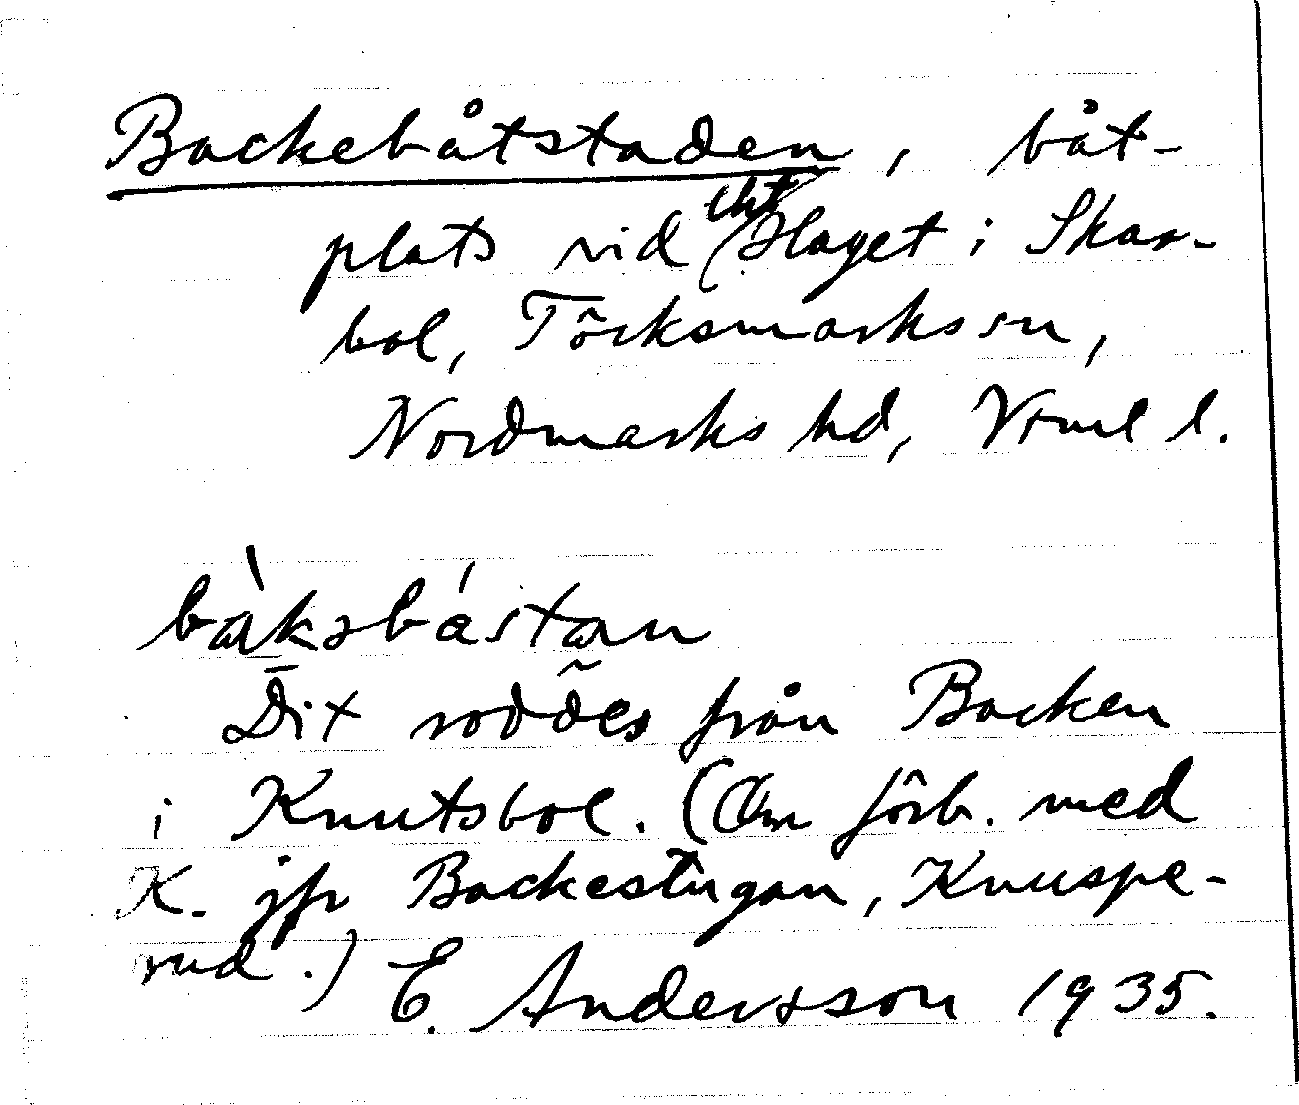 Backebåtstaden, båt-
plats vid (Haget i Skar-
bol, Töcksmarks sn,
Nordmarks hd, Vrml l.
bàksbástan
Dit roddes från Backen
i Knutsbol. (Om förb. med
K. jfr Backestugan, Knuspe-
rud.) E. Andersson 1935.